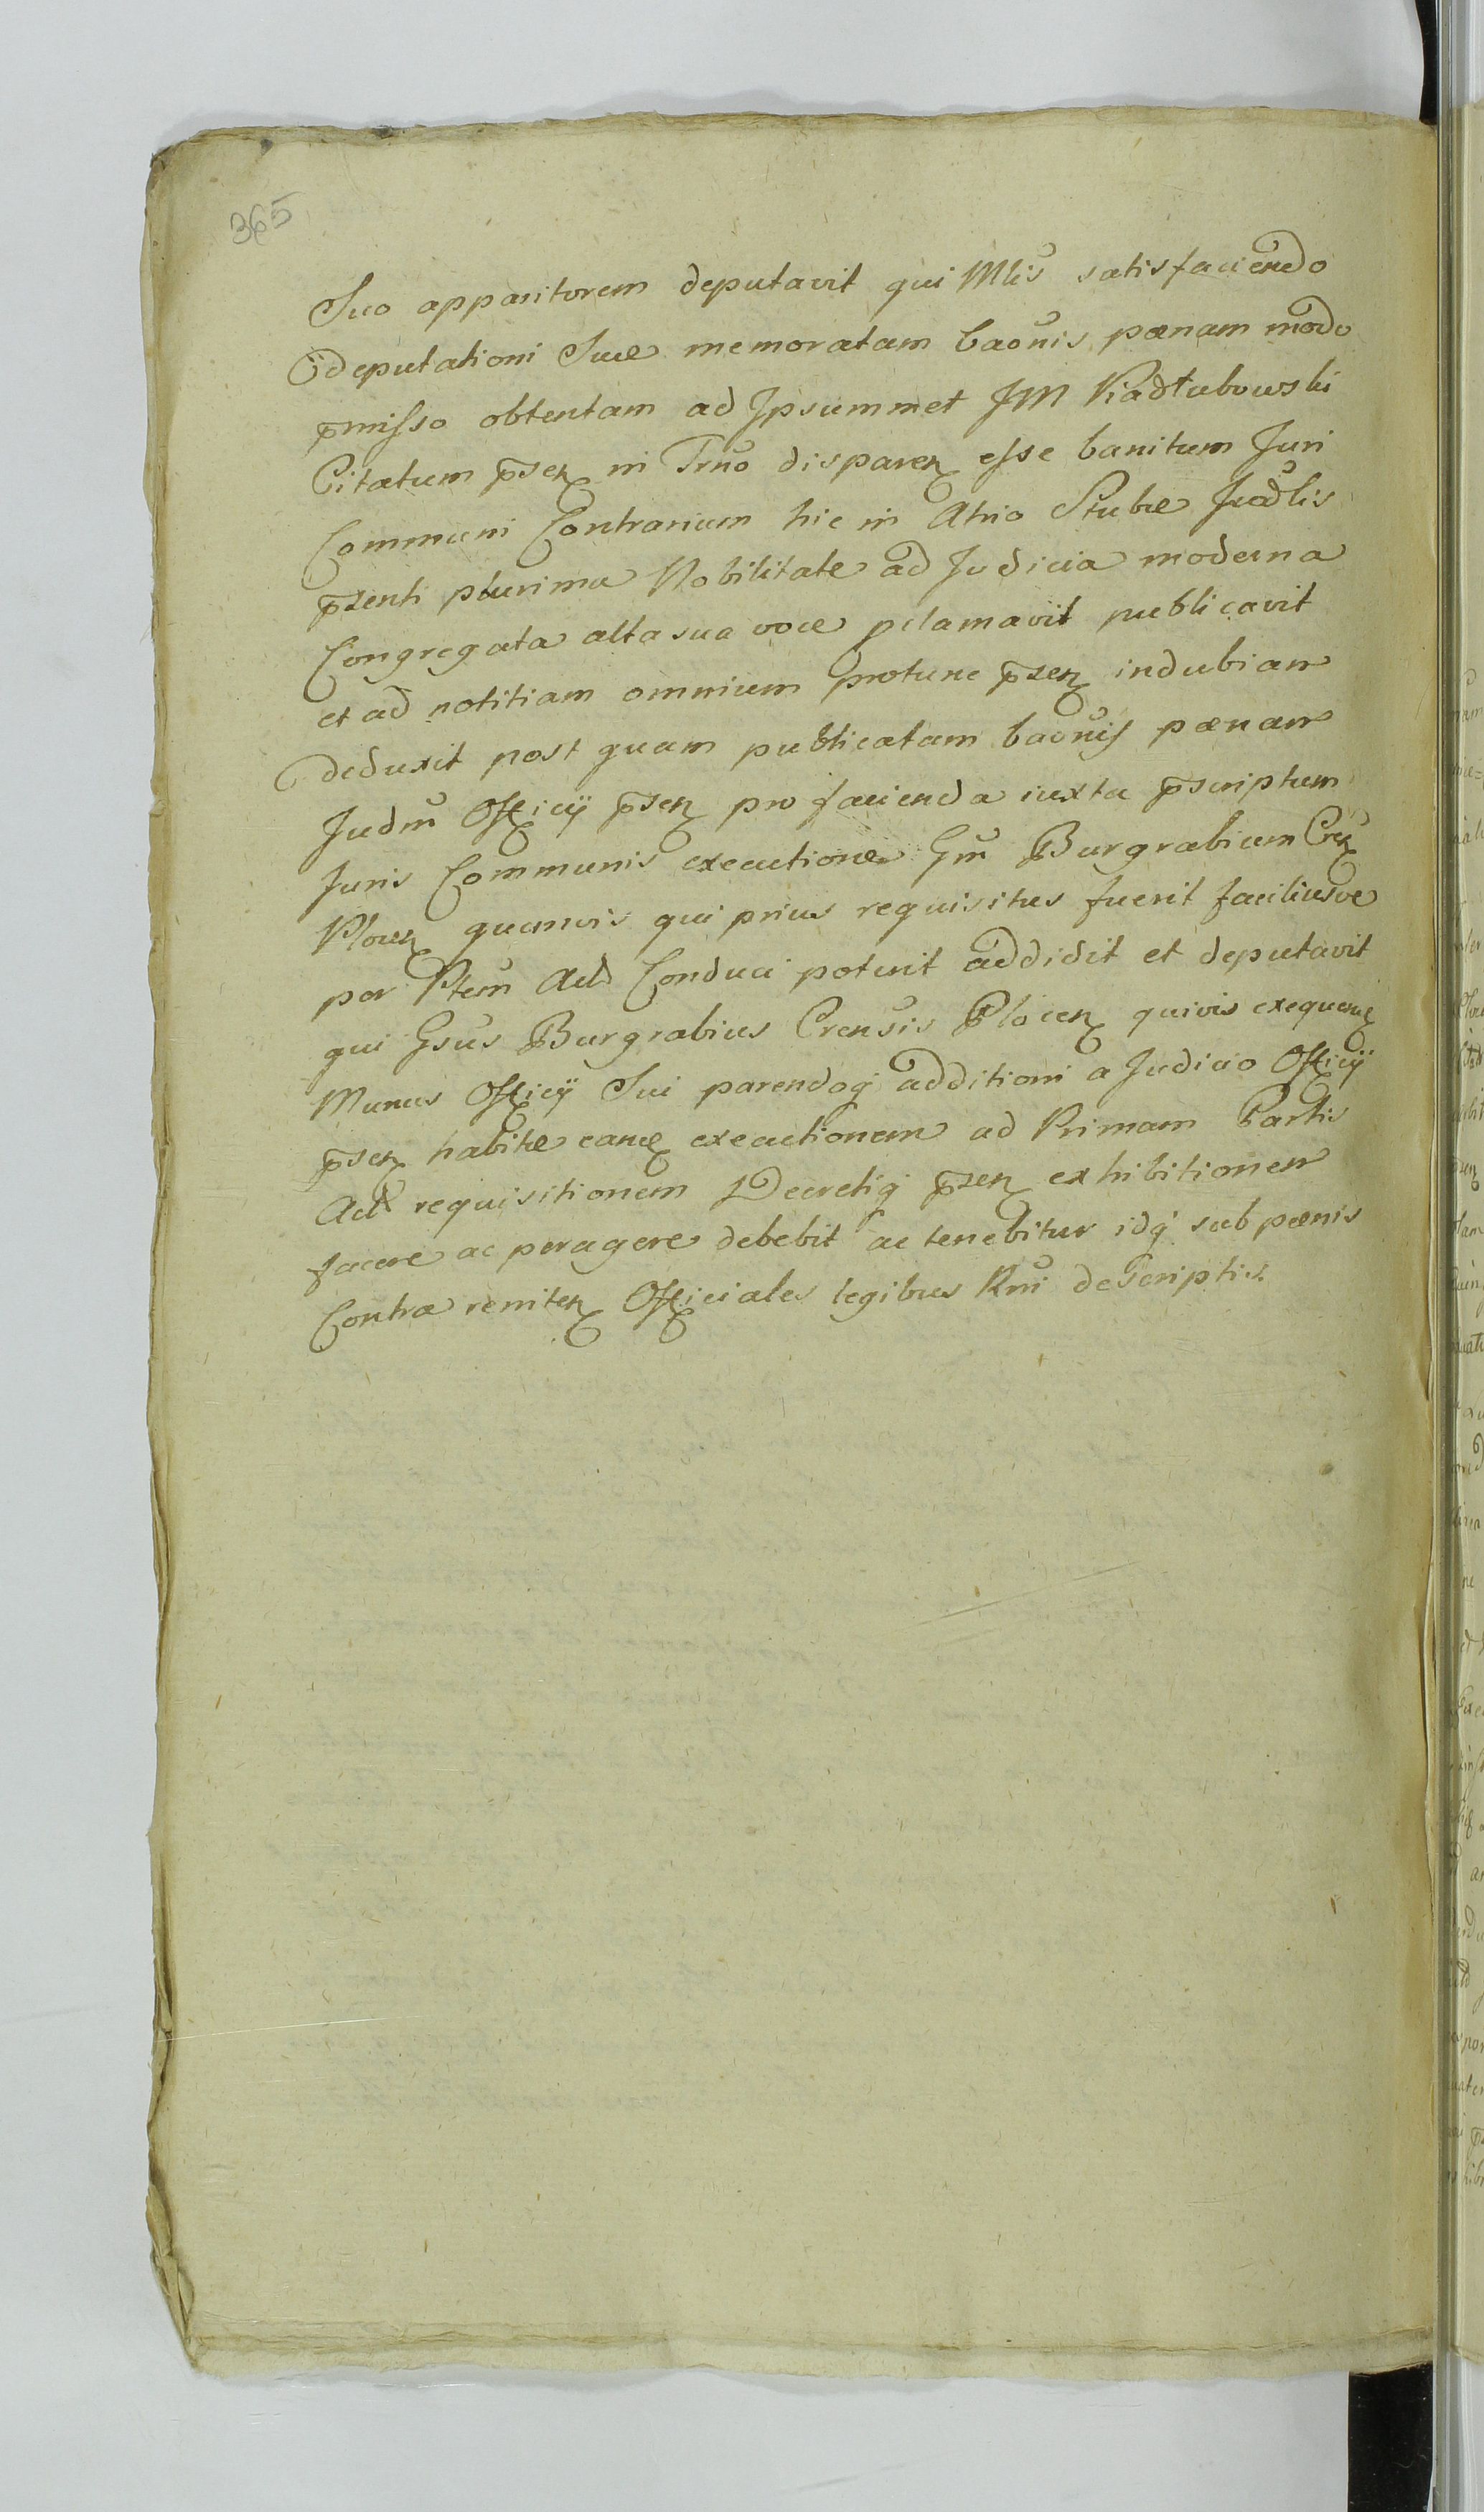 365
Suo apparitorem deputavit qui Mlis satisfaciendo
deputationi Suae memoratam baonis paenam modo
pmisso obtentam ad Ipsummet JM Kiadłubowski
Citatum psen in Trno disparen esse banitum Juri
Communi Contrarium hic in Atrio Stubae Judlis
pzenti plurima Nobilitate ad Judicia moderna
Congregata alta sua voce pclamavit publicavit
et ad notitiam omnium protunc pzen indubiam
deduxit post quam publicatam baonis paenam
Judm Officij psen pro facienda iuxta pscriptum
Juris Communis executione Gm Burgrabium Cren
Plocen quemvis qui prius requisitus fuerit faciliusve
per Ptem Act Conduci poterit addidit et deputavit
qui Gsus Burgrabius Crensis Plocen quivis exequens
Munus Officij Sui parendoq additioni a Judicio Officij
psen habitae eam executionem ad Primam Partis
Act requisitionem Decretiq pzen exhibitionem
facere ac peragere debebit ac tenebitur idq sub paenis
Contra reniten Officiales legibus Rni descriptis.